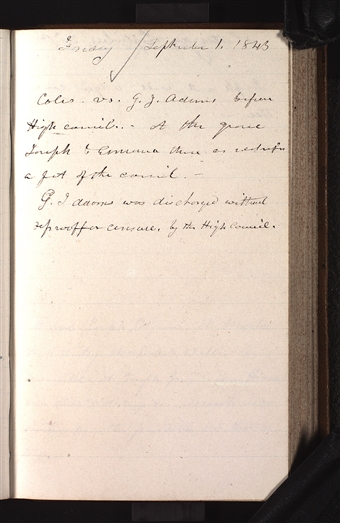 Friday September 1. 1843
Coles. vs. G. J. Adams before
High council. - at the grove
Joseph & there as
a of the council. -
G. J adams was discharged without
reproof or censure. by the High Council.